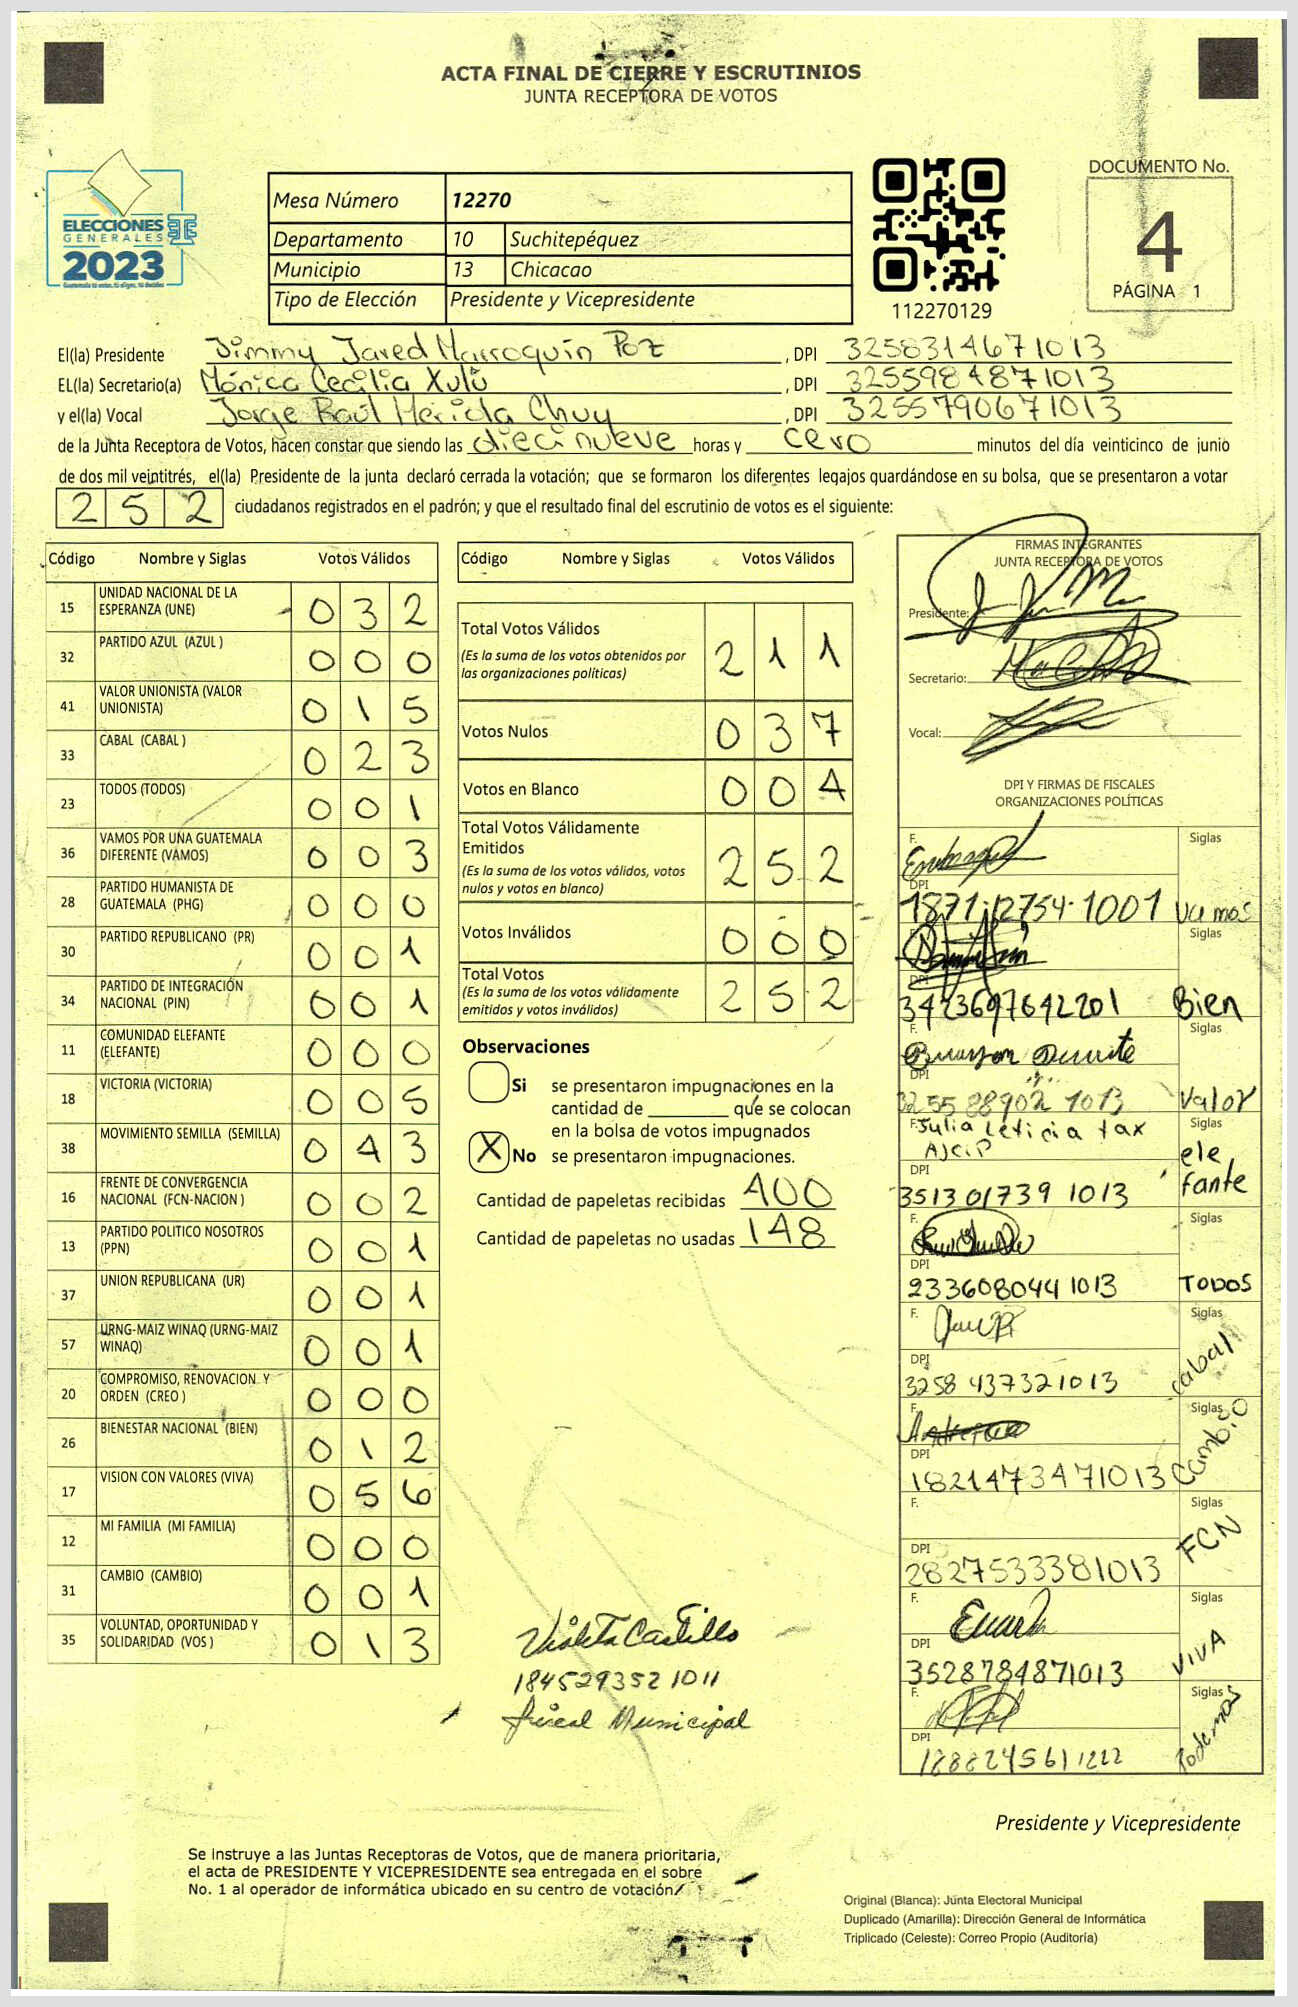 ACTA FINAL DE CIERRE Y ESCRUTINIOS
JUNTA RECEPTORA DE VOTOS
ELECCIONES
GENERALES
2023
Mesa Número 12270
Departamento 10 Suchitepéquez
Municipio 13 Chicacao
Tipo de Elección Presidente y Vicepresidente
112270129
DOCUMENTO No.
4
PÁGINA 1
El(la) Presidente Jimmy Jared Marroquín Poz, DPI 3258314671013
EL(la) Secretario(a) Mónica Cecilia Xulú, DPI 3255984871013
y el(la) Vocal Jorge Raúl Merida Chuy, DPI 3255790671013
de la Junta Receptora de Votos, hacen constar que siendo las diecinueve horas y cero minutos del día veinticinco de junio
de dos mil veintitrés, el(la) Presidente de la junta declaró cerrada la votación; que se formaron los diferentes legajos guardándose en su bolsa, que se presentaron a votar
252 ciudadanos registrados en el padrón; y que el resultado final del escrutinio de votos es el siguiente:
Código Nombre y Siglas Votos Válidos
15 UNIDAD NACIONAL DE LA ESPERANZA (UNE) 032
32 PARTIDO AZUL (AZUL ) 000
41 VALOR UNIONISTA (VALOR UNIONISTA) 015
33 CABAL (CABAL ) 023
23 TODOS (TODOS) 001
36 VAMOS POR UNA GUATEMALA DIFERENTE (VAMOS) 003
28 PARTIDO HUMANISTA DE GUATEMALA (PHG) 000
30 PARTIDO REPUBLICANO (PR) 001
34 PARTIDO DE INTEGRACIÓN NACIONAL (PIN) 001
11 COMUNIDAD ELEFANTE (ELEFANTE) 000
18 VICTORIA (VICTORIA) 005
38 MOVIMIENTO SEMILLA (SEMILLA) 043
16 FRENTE DE CONVERGENCIA NACIONAL (FCN-NACION ) 002
13 PARTIDO POLITICO NOSOTROS (PPN) 001
37 UNION REPUBLICANA (UR) 001
57 URNG-MAIZ WINAQ (URNG-MAIZ WINAQ) 001
20 COMPROMISO, RENOVACION Y ORDEN (CREO ) 000
26 BIENESTAR NACIONAL (BIEN) 012
17 VISION CON VALORES (VIVA) 056
12 MI FAMILIA (MI FAMILIA) 000
31 CAMBIO (CAMBIO) 001
35 VOLUNTAD, OPORTUNIDAD Y SOLIDARIDAD (VOS ) 013
Código Nombre y Siglas Votos Válidos
Total Votos Válidos 211
(Es la suma de los votos obtenidos por
las organizaciones políticas)
Votos Nulos 037
Votos en Blanco 004
Total Votos Válidamente
Emitidos 252
(Es la suma de los votos válidos, votos
nulos y votos en blanco)
Votos Inválidos 000
Total Votos 252
(Es la suma de los votos válidamente
emitidos y votos inválidos)
Observaciones
Si se presentaron impugnaciones en la
cantidad de ________ que se colocan
en la bolsa de votos impugnados
X No se presentaron impugnaciones.
Cantidad de papeletas recibidas 400
Cantidad de papeletas no usadas 148
Violeta Castillo
1845293521011
fiscal Municipal
FIRMAS INTEGRANTES
JUNTA RECEPTORA DE VOTOS
Presidente:
Secretario:
Vocal:
DPI Y FIRMAS DE FISCALES
ORGANIZACIONES POLÍTICAS
F. Siglas
DPI
1871.12754.1001 Vamos
Siglas
DPI
3423697642201 Bien
F. Siglas
DPI
3255889021013 Valor
F. Julia Leticia tax Siglas
DPI
3513017391013 ele fante
F. Siglas
DPI
2336080441013 TODOS
F. Siglas
DPI
3258437321013 cabal
F. Siglas
DPI
1821473471013 Cambio
F. Siglas
DPI
2827533381013 FCN
F. Siglas
DPI
3528784871013 VIVA
F. Siglas
DPI
1888245611222 Podemos
Presidente y Vicepresidente
Se instruye a las Juntas Receptoras de Votos, que de manera prioritaria,
el acta de PRESIDENTE Y VICEPRESIDENTE sea entregada en el sobre
No. 1 al operador de informática ubicado en su centro de votación
Original (Blanca): Junta Electoral Municipal
Duplicado (Amarilla): Dirección General de Informática
Triplicado (Celeste): Correo Propio (Auditoría)